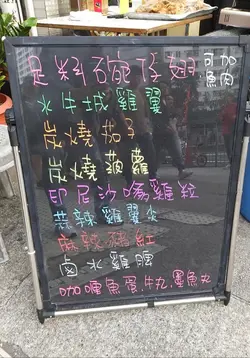 足料碗仔翅 可加魚肉
水牛城雞翼
炭燒茄子
炭燒菠蘿
印尼沙嗲雞粒
蒜辣雞翼尖
麻辣豬紅
鹵水雞腎
咖喱魚蛋牛丸.墨魚丸